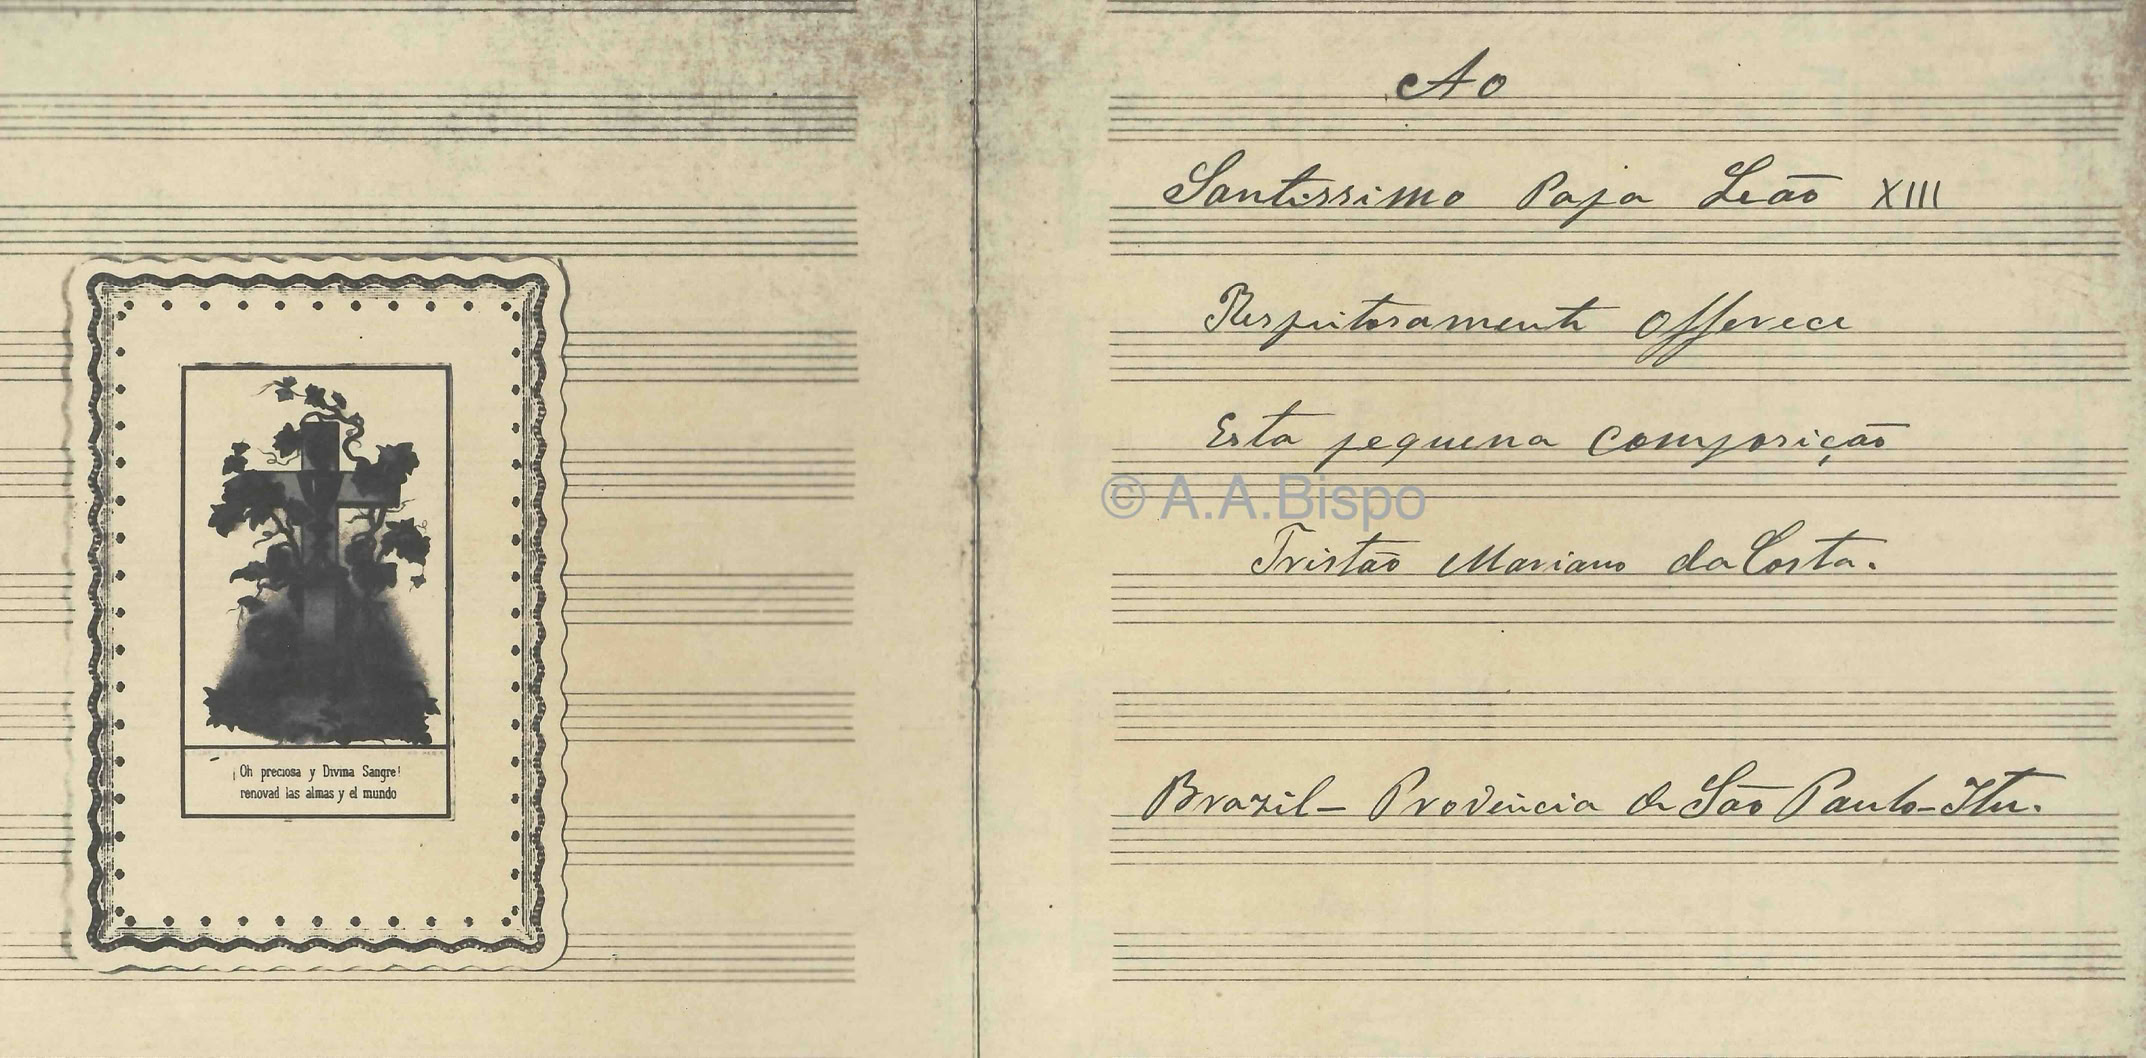 ¡Oh preciosa y Divina Sangre!
renovad las almas y el mundo
Ao
Santissimo Papa Leão XIII
Respeitosamente offerece
Esta pequena composição
© A.A.Bispo
Tristão Mariano da Costa.
Brazil – Provincia de São Paulo – Itu.